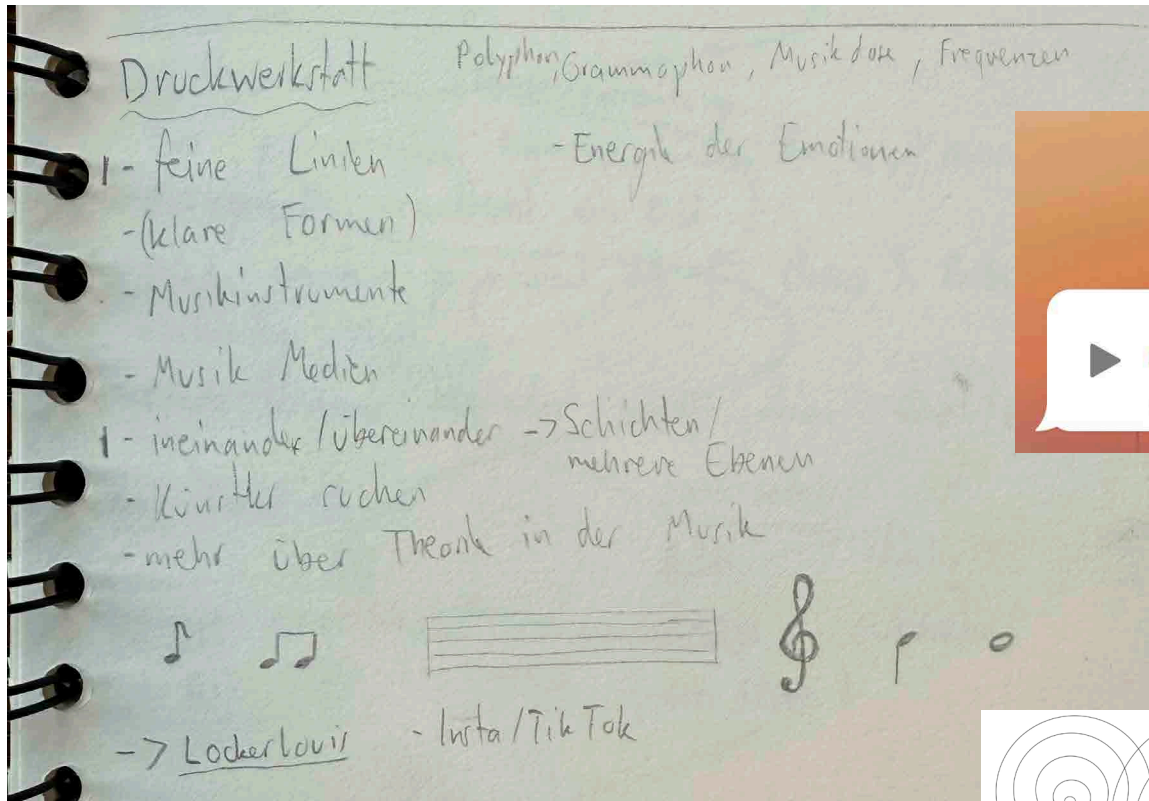 Druckwerkstatt
Polyphon, Grammophon, Musikdose, Frequenzen
1 - feine Linien
- Energie der Emotionen
- (klare Formen)
- Musikinstrumente
- Musik Medien
1 - ineinander/übereinander -> Schichten/
mehrere Ebenen
- Künstler suchen
- mehr über Theorie in der Musik
-> Lockerlouis
- Insta/TikTok